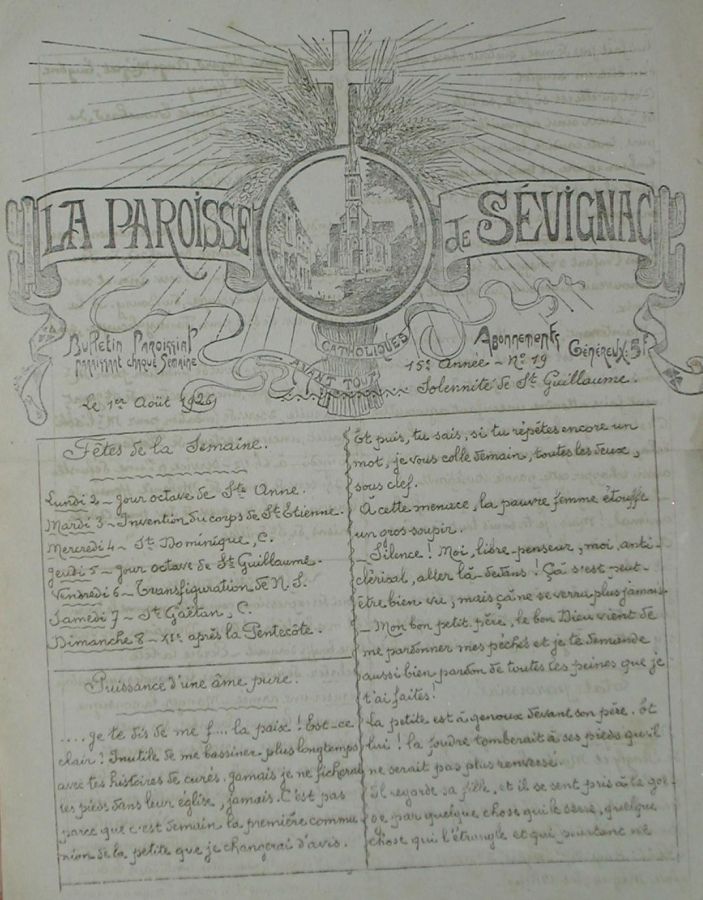 LA PAROISSE de SÉVIGNAC
CATHOLIQUES
AVANT TOUT
Bulletin Paroissial
paraissant chaque Semaine
Abonnements
Généreux: 5f
15e Année - No 19
Le 1er Août 1926
Solennité de St Guillaume.
Fêtes de la Semaine.
Lundi 2 - Jour octave de Ste Anne.
Mardi 3 - Invention du corps de St Etienne.
Mercredi 4 - St Dominique, C.
Jeudi 5 - Jour octave de St Guillaume
Vendredi 6 - Transfiguration de N. S.
Samedi 7 - St Gaëtan, C.
Dimanche 8 - XIe après la Pentecôte.
Puissance d'une âme pure.
....Je te dis de me f... la paix! Est-ce
clair? Inutile de me bassiner plus longtemps
avec tes histoires de curés. Jamais je ne ficherai
les pieds dans leur église, jamais. C'est pas
parce que c'est demain la première commu
nion de la petite que je changerai d'avis.
Et puis, tu sais, si tu répètes encore un
mot, je vous colle demain, toutes les deux,
sous clef.
À cette menace, la pauvre femme étouffe
un gros soupir.
- Silence! Moi, libre-penseur, moi, anti-
clérical, aller là-dedans! Çà s'est peut-
être bien vu, mais çà ne se verra plus jamais.
- Mon bon petit père, le bon Dieu vient de
me pardonner mes péchés et je te demande
aussi bien pardon de toutes les peines que je
t'ai faites!
La petite est à genoux devant son père. Et
lui! la foudre tomberait à ses pieds qu'il
ne serait pas plus renversé.
Il regarde sa fille, et il se sent pris à la gor-
ge par quelque chose qui le serre, quelque
chose qui l'étrangle et qui pourtant ne